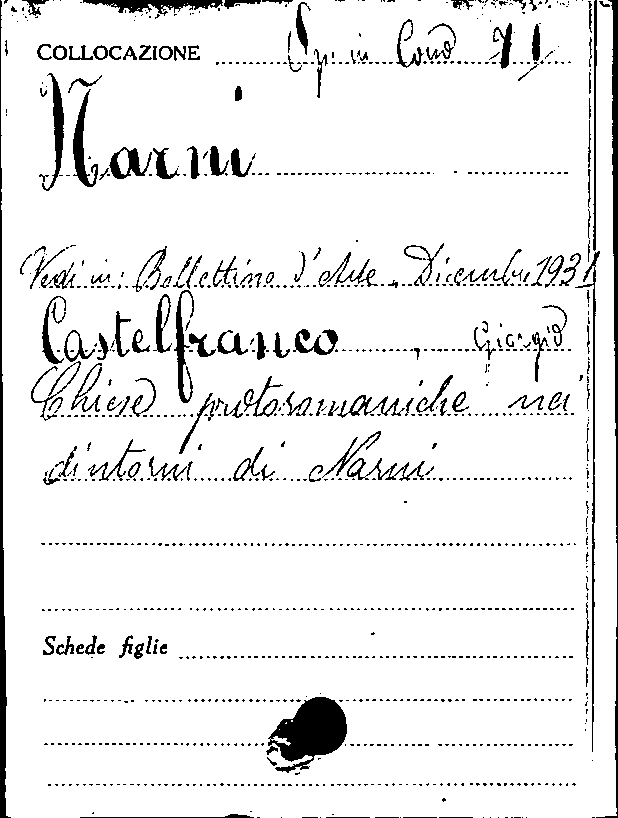 COLLOCAZIONE Op. in Cons 71
Narni
Vedi in: Bollettino d'Arte, Dicembre 1931
Castelfranco, Giorgio
Chiese protoromaniche nei
dintorni di Narni
Schede figlie